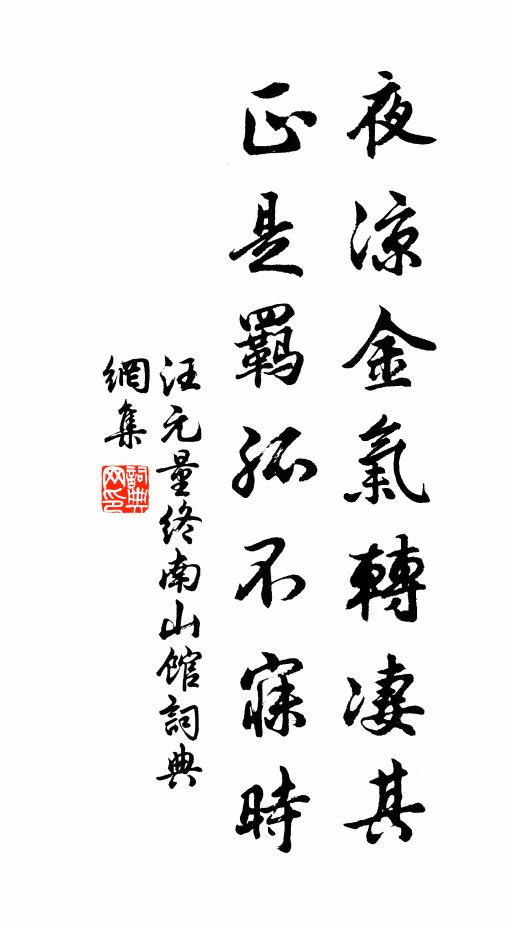 夜涼金氣轉凄其
正是羈孤不寐時
汪元量終南山館詞典
網集
詞典網印